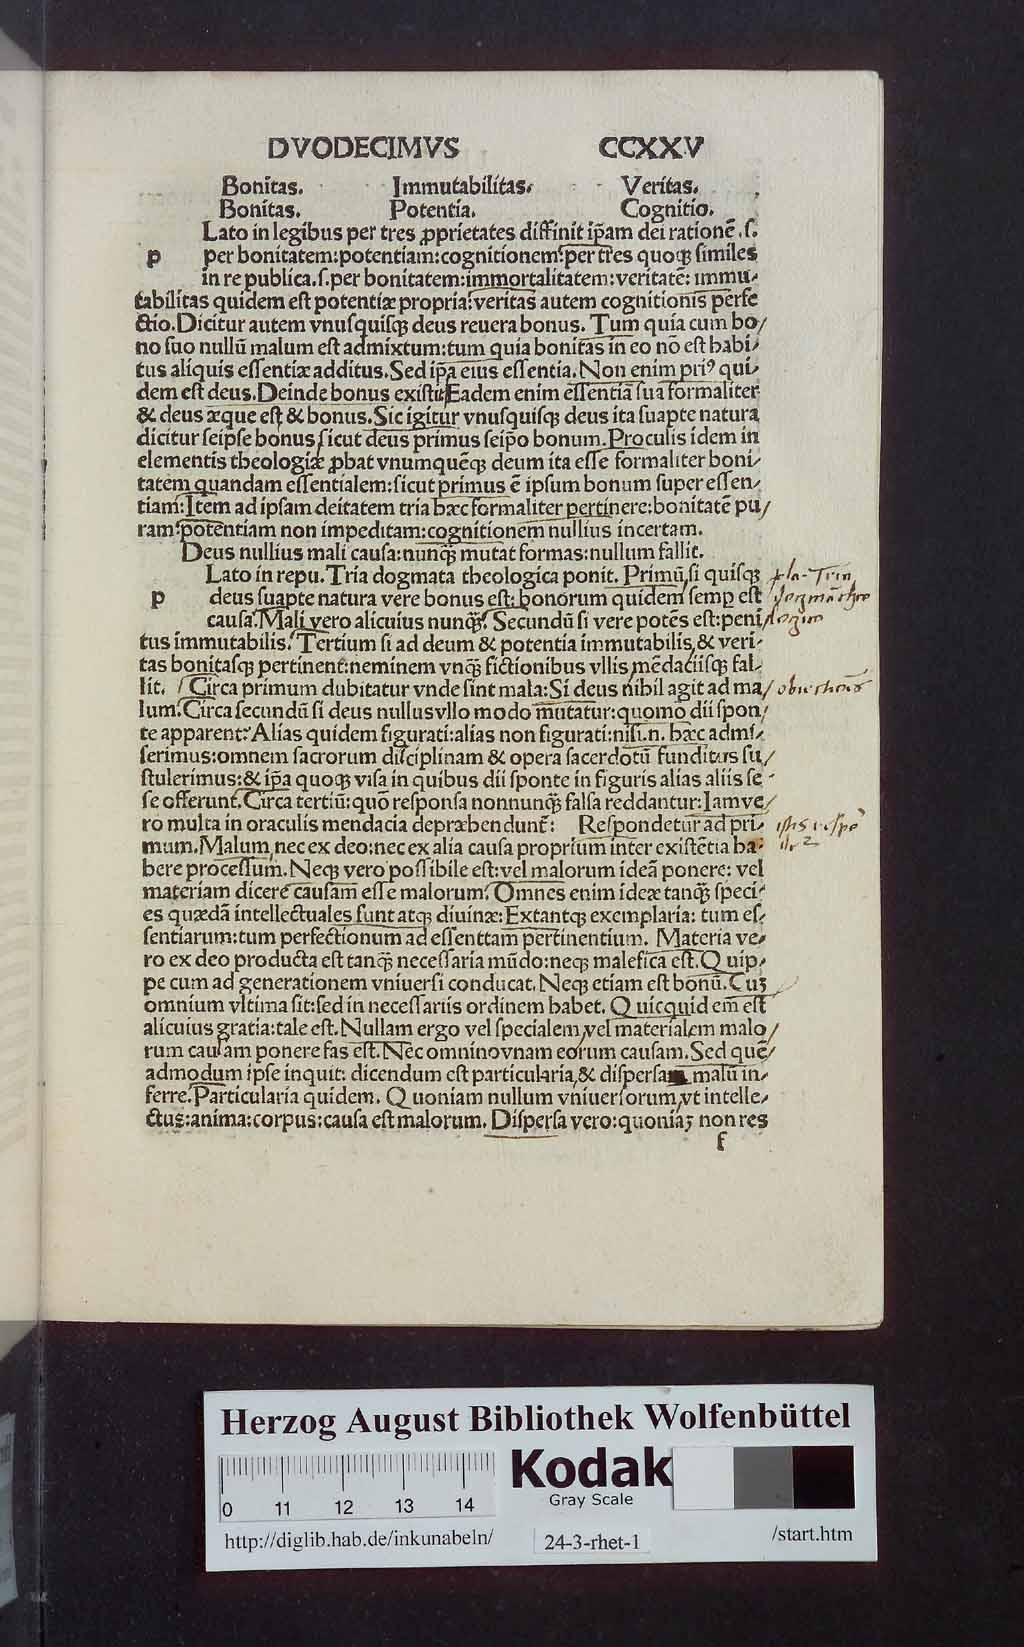 DVODECIMVS CCXXV
Bonitas. Immutabilitas. Veritas.
Bonitas. Potentia. Cognitio.
Lato in legibus per tres ꝓprietates diffinit ip̄am dei rationē.ſ.
p per bonitatem:potentiam:cognitionem:per tres quoqꝫ ſimiles
in re publica.ſ.per bonitatem:immortalitatem:veritatē: immu-
tabilitas quidem eſt potentiæ propria:veritas autem cognitionis perfe
ctio.Dicitur autem vnuſquiſqꝫ deus reuera bonus. Tum quia cum bo/
no ſuo nullū malum eſt admixtum:tum quia bonitas in eo nō eſt habi-
tus aliquis eſſentiæ additus.Sed ip̄a eius eſſentia.Non enim priꝰ qui-
dem eſt deus.Deinde bonus exiſtit.Eadem enim eſſentiā ſua formaliter
& deus æque eſt & bonus.Sic igitur vnuſquiſqꝫ deus ita ſuapte natura
dicitur ſeipſe bonus ſicut deus primus ſeip̄o bonum.Proculis idem in
elementis theologiæ ꝓbat vnumquēqꝫ deum ita eſſe formaliter boni-
tatem quandam eſſentialem:ſicut primus ē ipſum bonum ſuper eſſen-
tiam:Item ad ipſam deitatem tria hæc formaliter pertinere:bonitatē pu/
ram:potentiam non impeditam:cognitionem nullius incertam.
Deus nullius mali cauſa:nunqꝫ̄ mutat formas:nullum fallit.
Lato in repu.Tria dogmata theologica ponit. Primū,ſi quiſqꝫ
p deus ſuapte natura vere bonus eſt: bonorum quidem ſemꝑ eſt
cauſa.Mali vero alicuius nunqꝫ̄. Secundū ſi vere potēs eſt:peni/
tus immutabilis. Tertium ſi ad deum & potentia immutabilis,& veri-
tas bonitaſqꝫ pertinent:neminem vnqꝫ̄ fictionibus vllis,mēdaciiſqꝫ fal-
lit. Circa primum dubitatur vnde ſint mala:Si deus nihil agit ad ma/
lum.Circa ſecundū ſi deus nullusvllo modo mutatur:quomo dii ſpon/
te apparent?Alias quidem figurati:alias non figurati:niſi.n. hæc admi-
ſerimus:omnem ſacrorum diſciplinam & opera ſacerdotū funditus ſu/
ſtulerimus:& ip̄a quoqꝫ viſa in quibus dii ſponte in figuris alias aliis ſe-
ſe offerunt.Circa tertiū:quō reſponſa nonnunqꝫ̄ falſa reddantur:Iamve/
ro multa in oraculis mendacia depræhendunt: Reſpondetur ad pri-
mum.Malum,nec ex deo:nec ex alia cauſa proprium inter exiſtētia ha-
bere proceſſum.Neqꝫ vero poſſibile eſt:vel malorum ideā ponere: vel
materiam dicere cauſam eſſe malorum.Omnes enim ideæ tanqꝫ̄ ſpeci-
es quædā intellectuales ſunt atqꝫ diuinæ:Extantqꝫ exemplaria: tum eſ-
ſentiarum:tum perfectionum ad eſſenttam pertinentium. Materia ve-
ro ex deo producta eſt tanqꝫ̄ neceſſaria mūdo:neqꝫ malefica eſt.Quip-
pe cum ad generationem vniuerſi conducat.Neqꝫ etiam eſt bonū.Cuꝫ
omnium vltima ſit:ſed in neceſſariis ordinem habet.Quicquid em̄ eſt
alicuius gratia:tale eſt.Nullam ergo vel ſpecialem,vel materialem malo/
rum cauſam ponere fas eſt.Nec omninovnam eorum cauſam.Sed quē/
admodum ipſe inquit: dicendum eſt particularia,& diſperſa malū in-
ferre.Particularia quidem. Quoniam nullum vniuerſorum,vt intelle-
ctus:anima:corpus:cauſa eſt malorum. Diſperſa vero:quoniaꝫ non res
f
Herzog August Bibliothek Wolfenbüttel
0 11 12 13 14
Kodak
Gray Scale
http://diglib.hab.de/inkunabeln/ 24-3-rhet-1 /start.htm